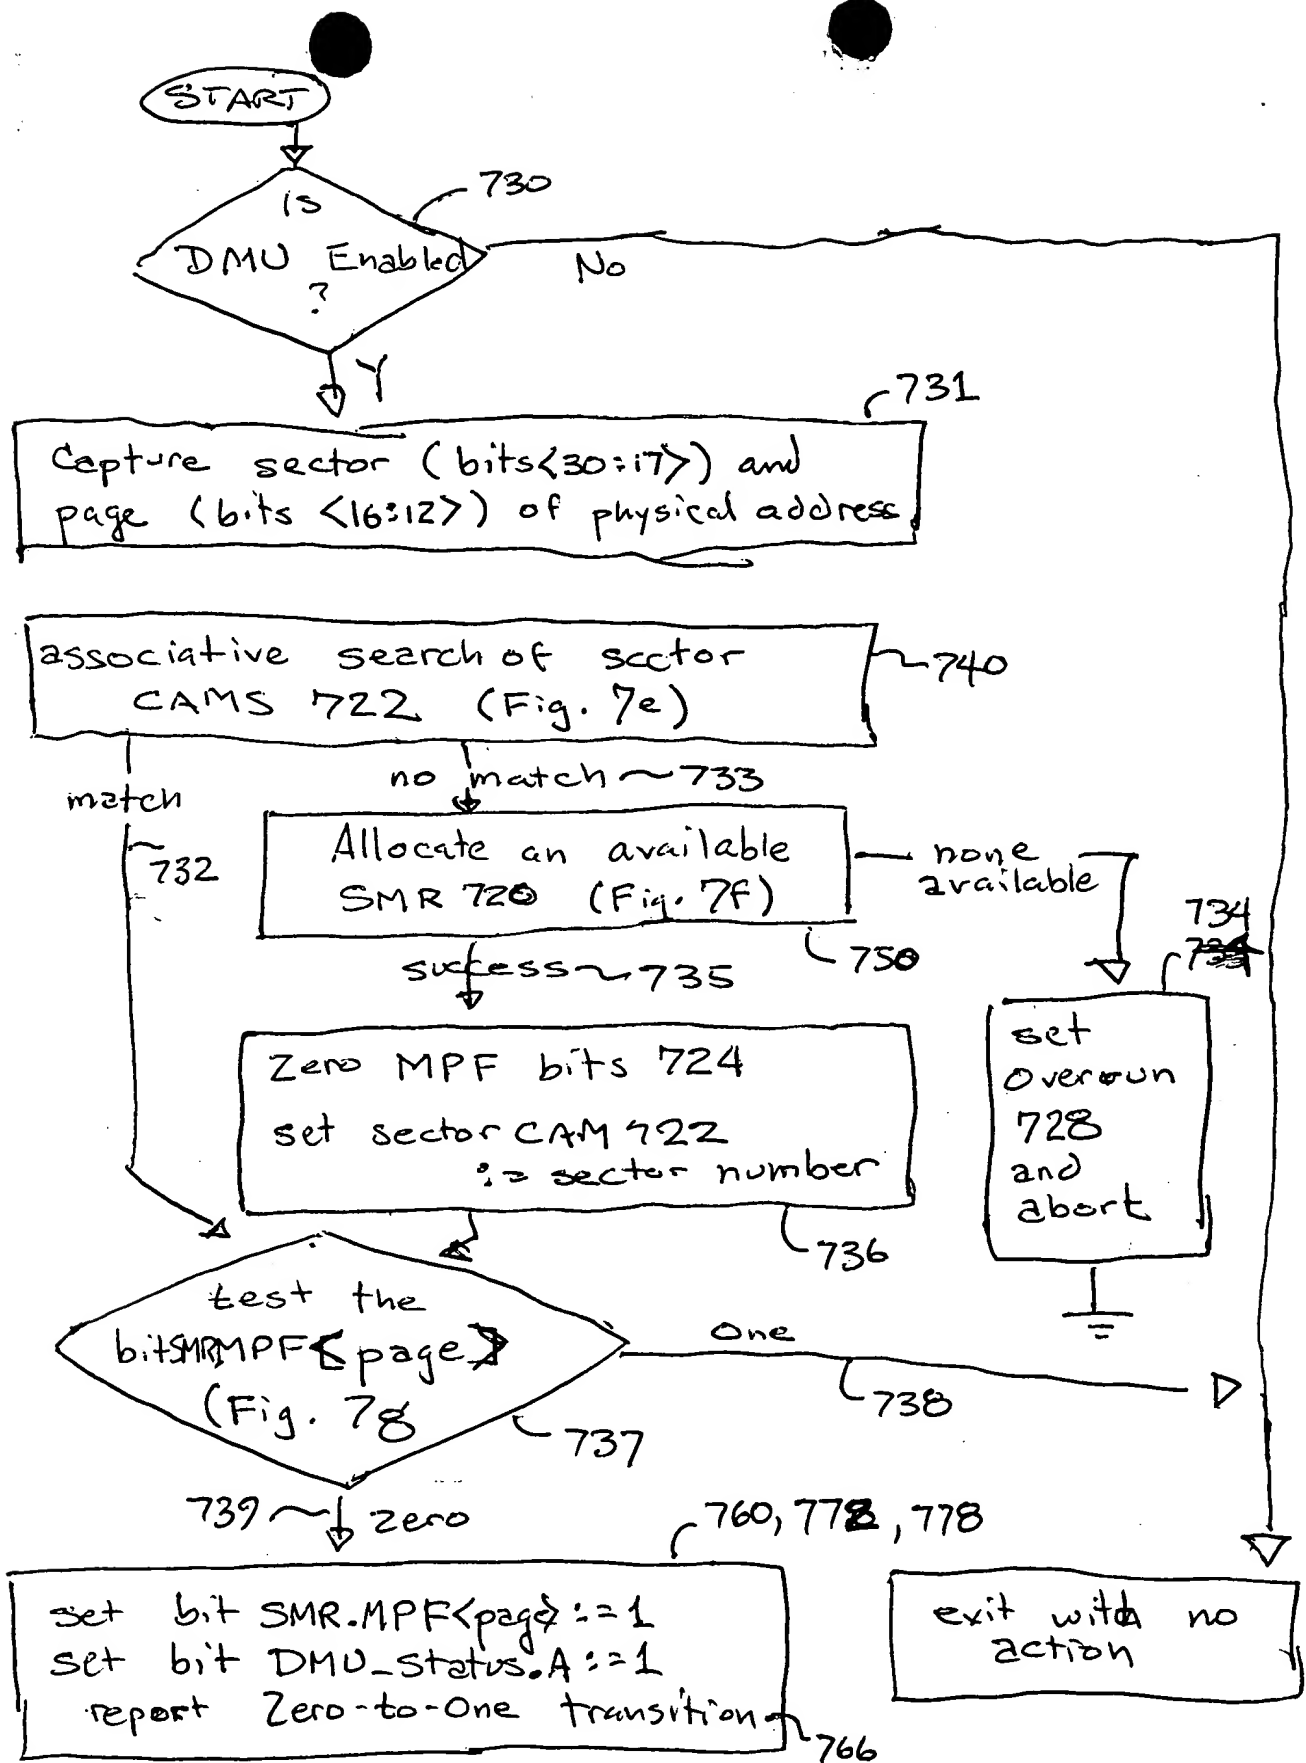 START
730
is
DMU Enabled
?
No
Y
731
Capture sector (bits<30:17>) and
page (bits <16:12>) of physical address
associative search of sector
CAMS 722 (Fig. 7e)
740
match
no match 733
732
Allocate an available
SMR 720 (Fig. 7f)
none
available
750
734
success 735
set
overrun
728
and
abort
Zero MPF bits 724
set sector CAM 722
:= sector number
736
test the
bit SMR MPF<page>
(Fig. 7g
One
738
737
739 zero
760, 772, 778
set bit SMR.MPF<page> :=1
set bit DMU_Status.A :=1
report Zero-to-One transition
766
exit with no
action